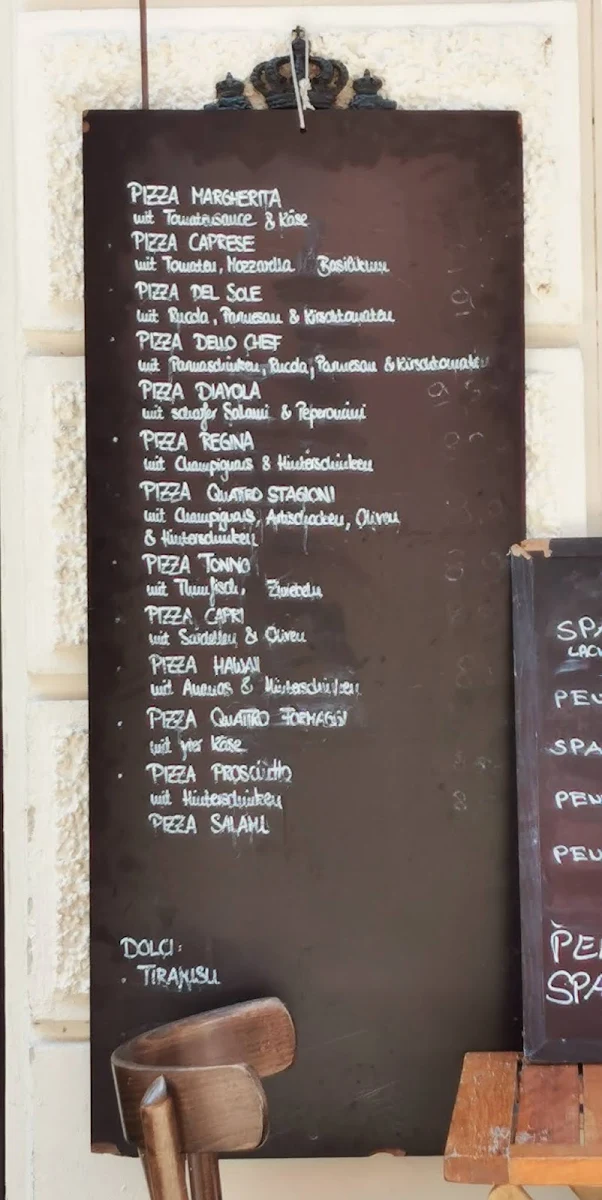 PIZZA MARGHERITA
mit Tomatensauce & Käse
PIZZA CAPRESE
mit Tomaten, Mozzarella Basilikum
PIZZA DEL SOLE
mit Rucola, Parmesan & Kirschtomaten
PIZZA DELLO CHEF
mit Parmaschinken, Rucola, Parmesan & Kirschtomaten
PIZZA DIAVOLA
mit scharfer Salami & Peperoncini
PIZZA REGINA
mit Champignons & Hinterschinken
PIZZA QUATRO STAGIONI
mit Champignons, Artischocken, Oliven
& Hinterschinken
PIZZA TONNO
mit Thunfisch, Zwiebeln
PIZZA CAPRI
mit Sardellen & Oliven
PIZZA HAWAII
mit Ananas & Hinterschinken
PIZZA QUATTRO FORMAGGI
mit vier Käse
PIZZA PROSCIUTTO
mit Hinterschinken
PIZZA SALAMI
DOLCI:
· TIRAMISU
SPA
LAC
PEN
SPA
PEN
PEN
PEN
SPA